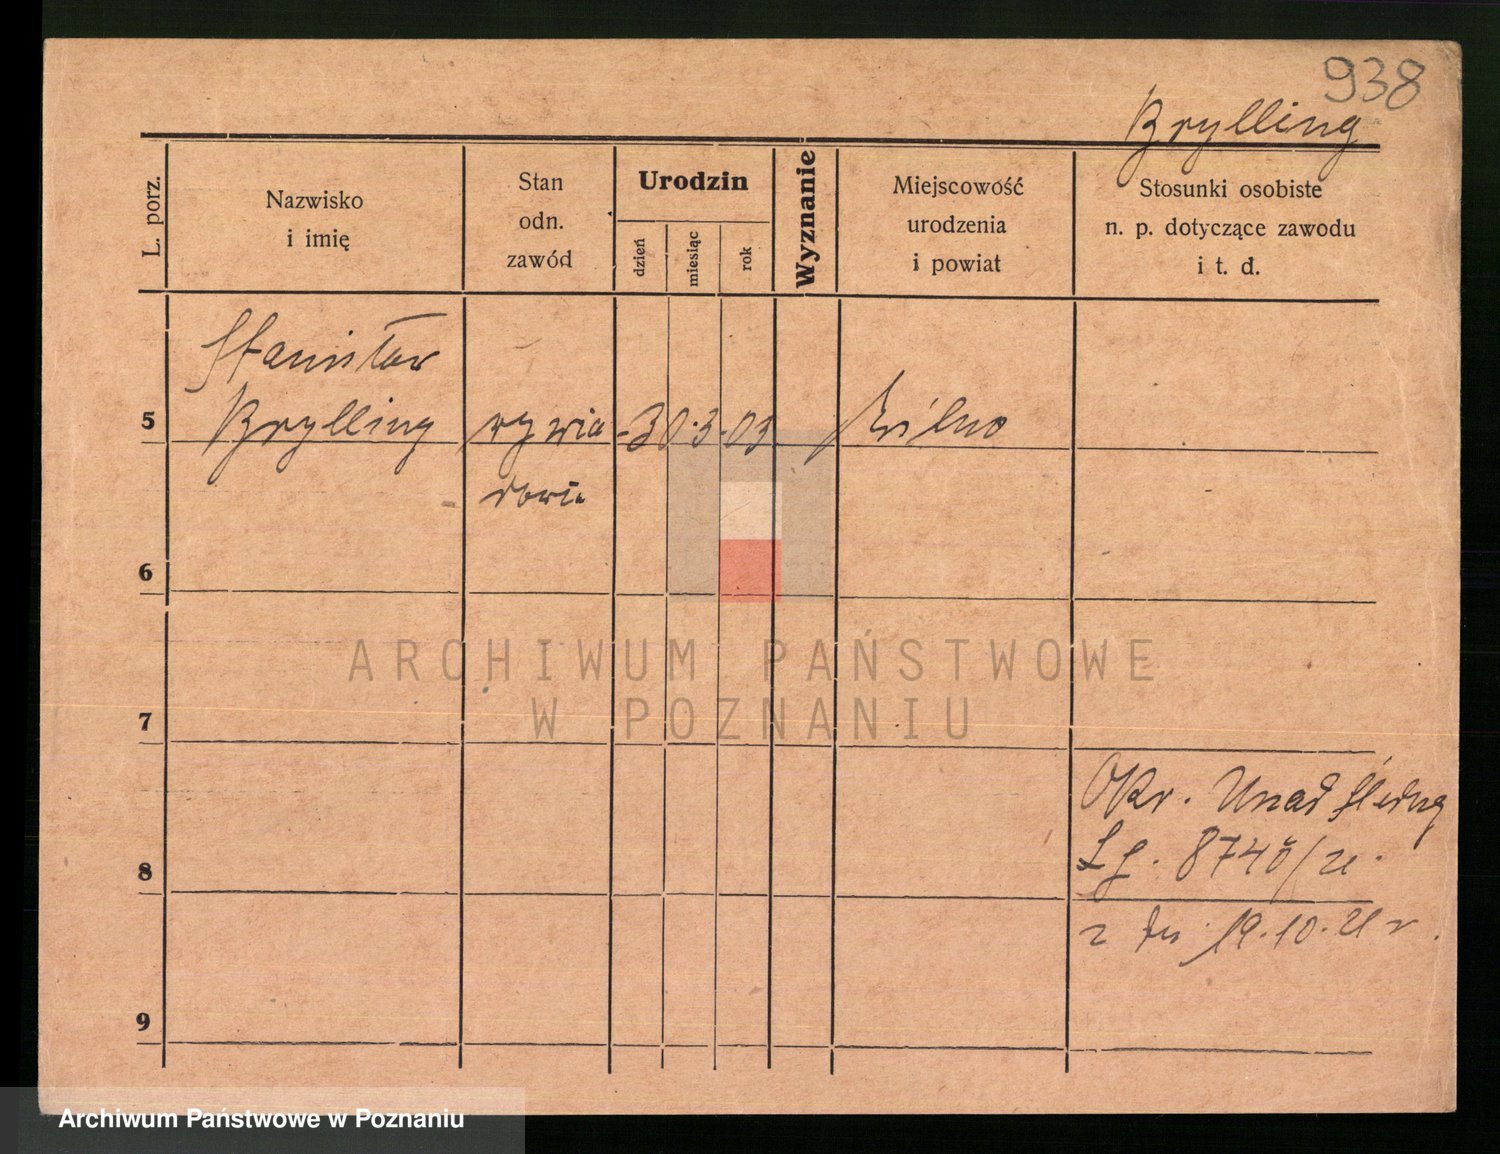 938
Brylling
L. porz.
Nazwisko
i imię
Stan
odn.
zawód
Urodzin
dzień
miesiąc
rok
Wyznanie
Miejscowość
urodzenia
i powiat
Stosunki osobiste
n. p. dotyczące zawodu
i t. d.
Stanisław
5 Brylling wywia 30.3.03 Wilno
dowca
6
ARCHIWUM PAŃSTWOWE
W POZNANIU
7
Okr. Urząd śledczy
8
z dn. 19.10.21 r.
9
Archiwum Państwowe w Poznaniu